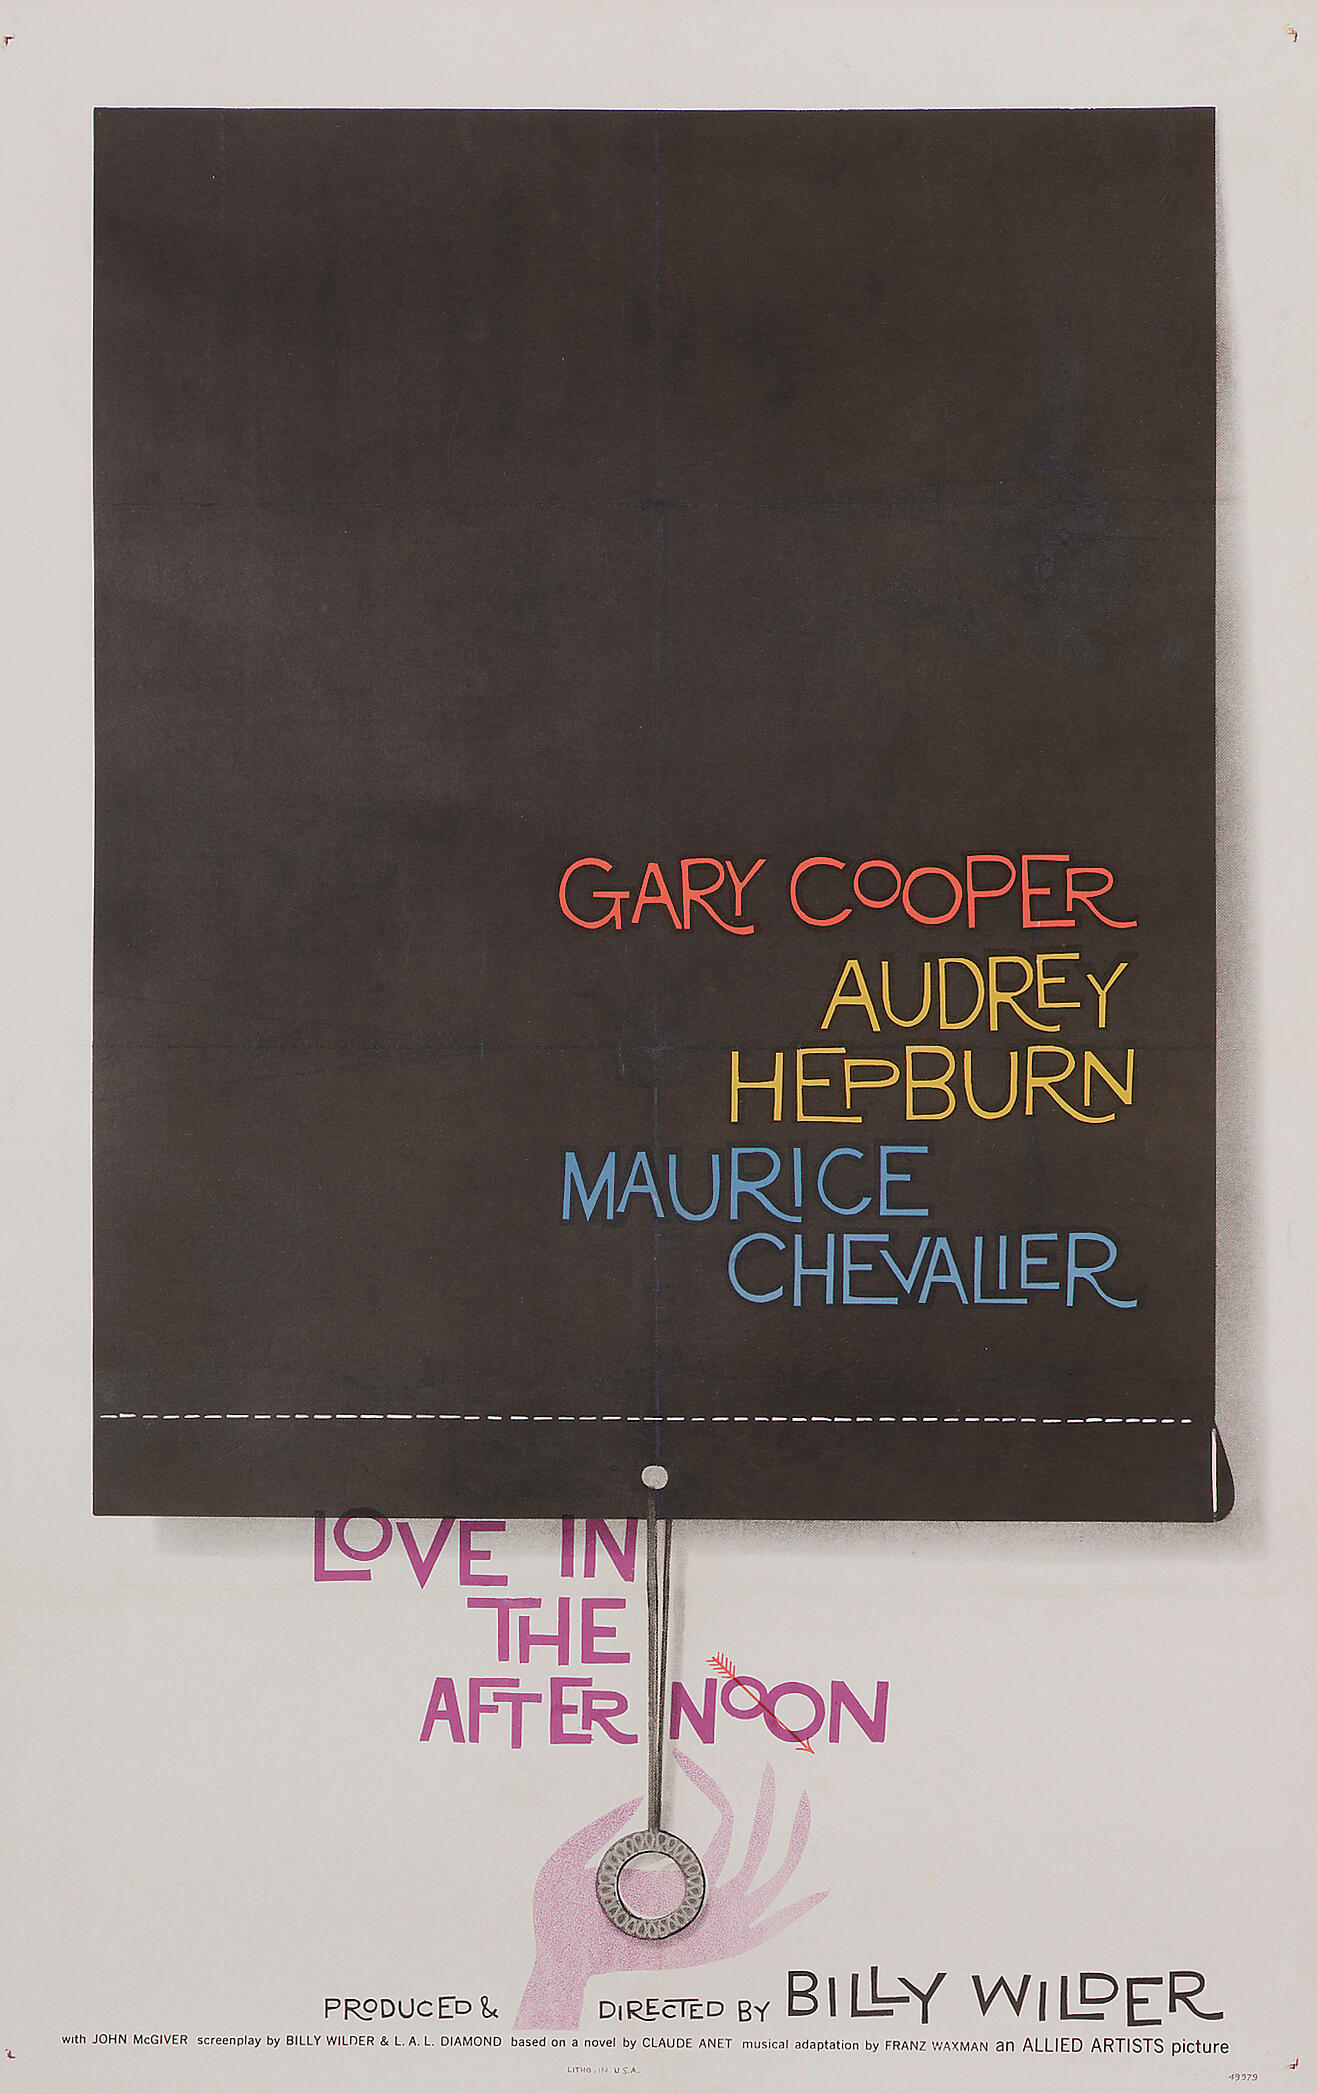 GARY COOPER
AUDREY
HEPBURN
MAURICE
CHEVALIER
LOVE IN
THE
AFTERNOON
PRODUCED & DIRECTED BY BILLY WILDER
with JOHN McGIVER screenplay by BILLY WILDER & L. A. L. DIAMOND based on a novel by CLAUDE ANET musical adaptation by FRANZ WAXMAN an ALLIED ARTISTS picture
LITHO. IN U.S.A.
49979